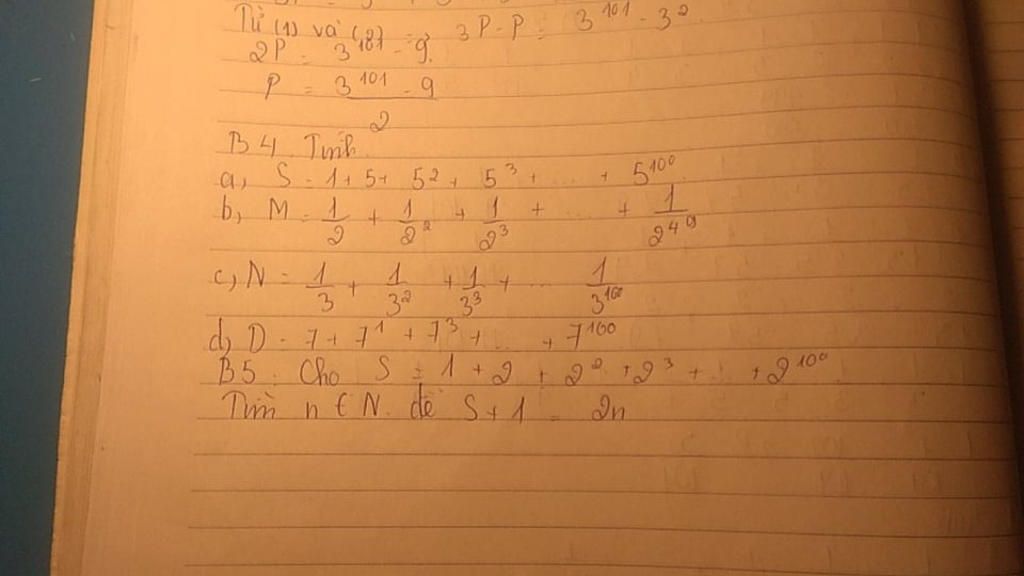 Từ (1) và (2) = 3P - P = 3^101 - 3^2
2P = 3^101 - 9.
P = \frac{3^101 - 9}{2}
B4 Tính
a, S = 1 + 5 + 5^2 + 5^3 + ... + 5^100
b, M = \frac{1}{2} + \frac{1}{2^2} + \frac{1}{2^3} + ... + \frac{1}{2^49}
c, N = \frac{1}{3} + \frac{1}{3^2} + \frac{1}{3^3} + ... \frac{1}{3^100}
d, D = 7 + 7^1 + 7^3 + ... + 7^100
B5: Cho S = 1 + 2 + 2^2 + 2^3 + ... + 2^100
Tìm n ∈ N. để S + 1 = 2n